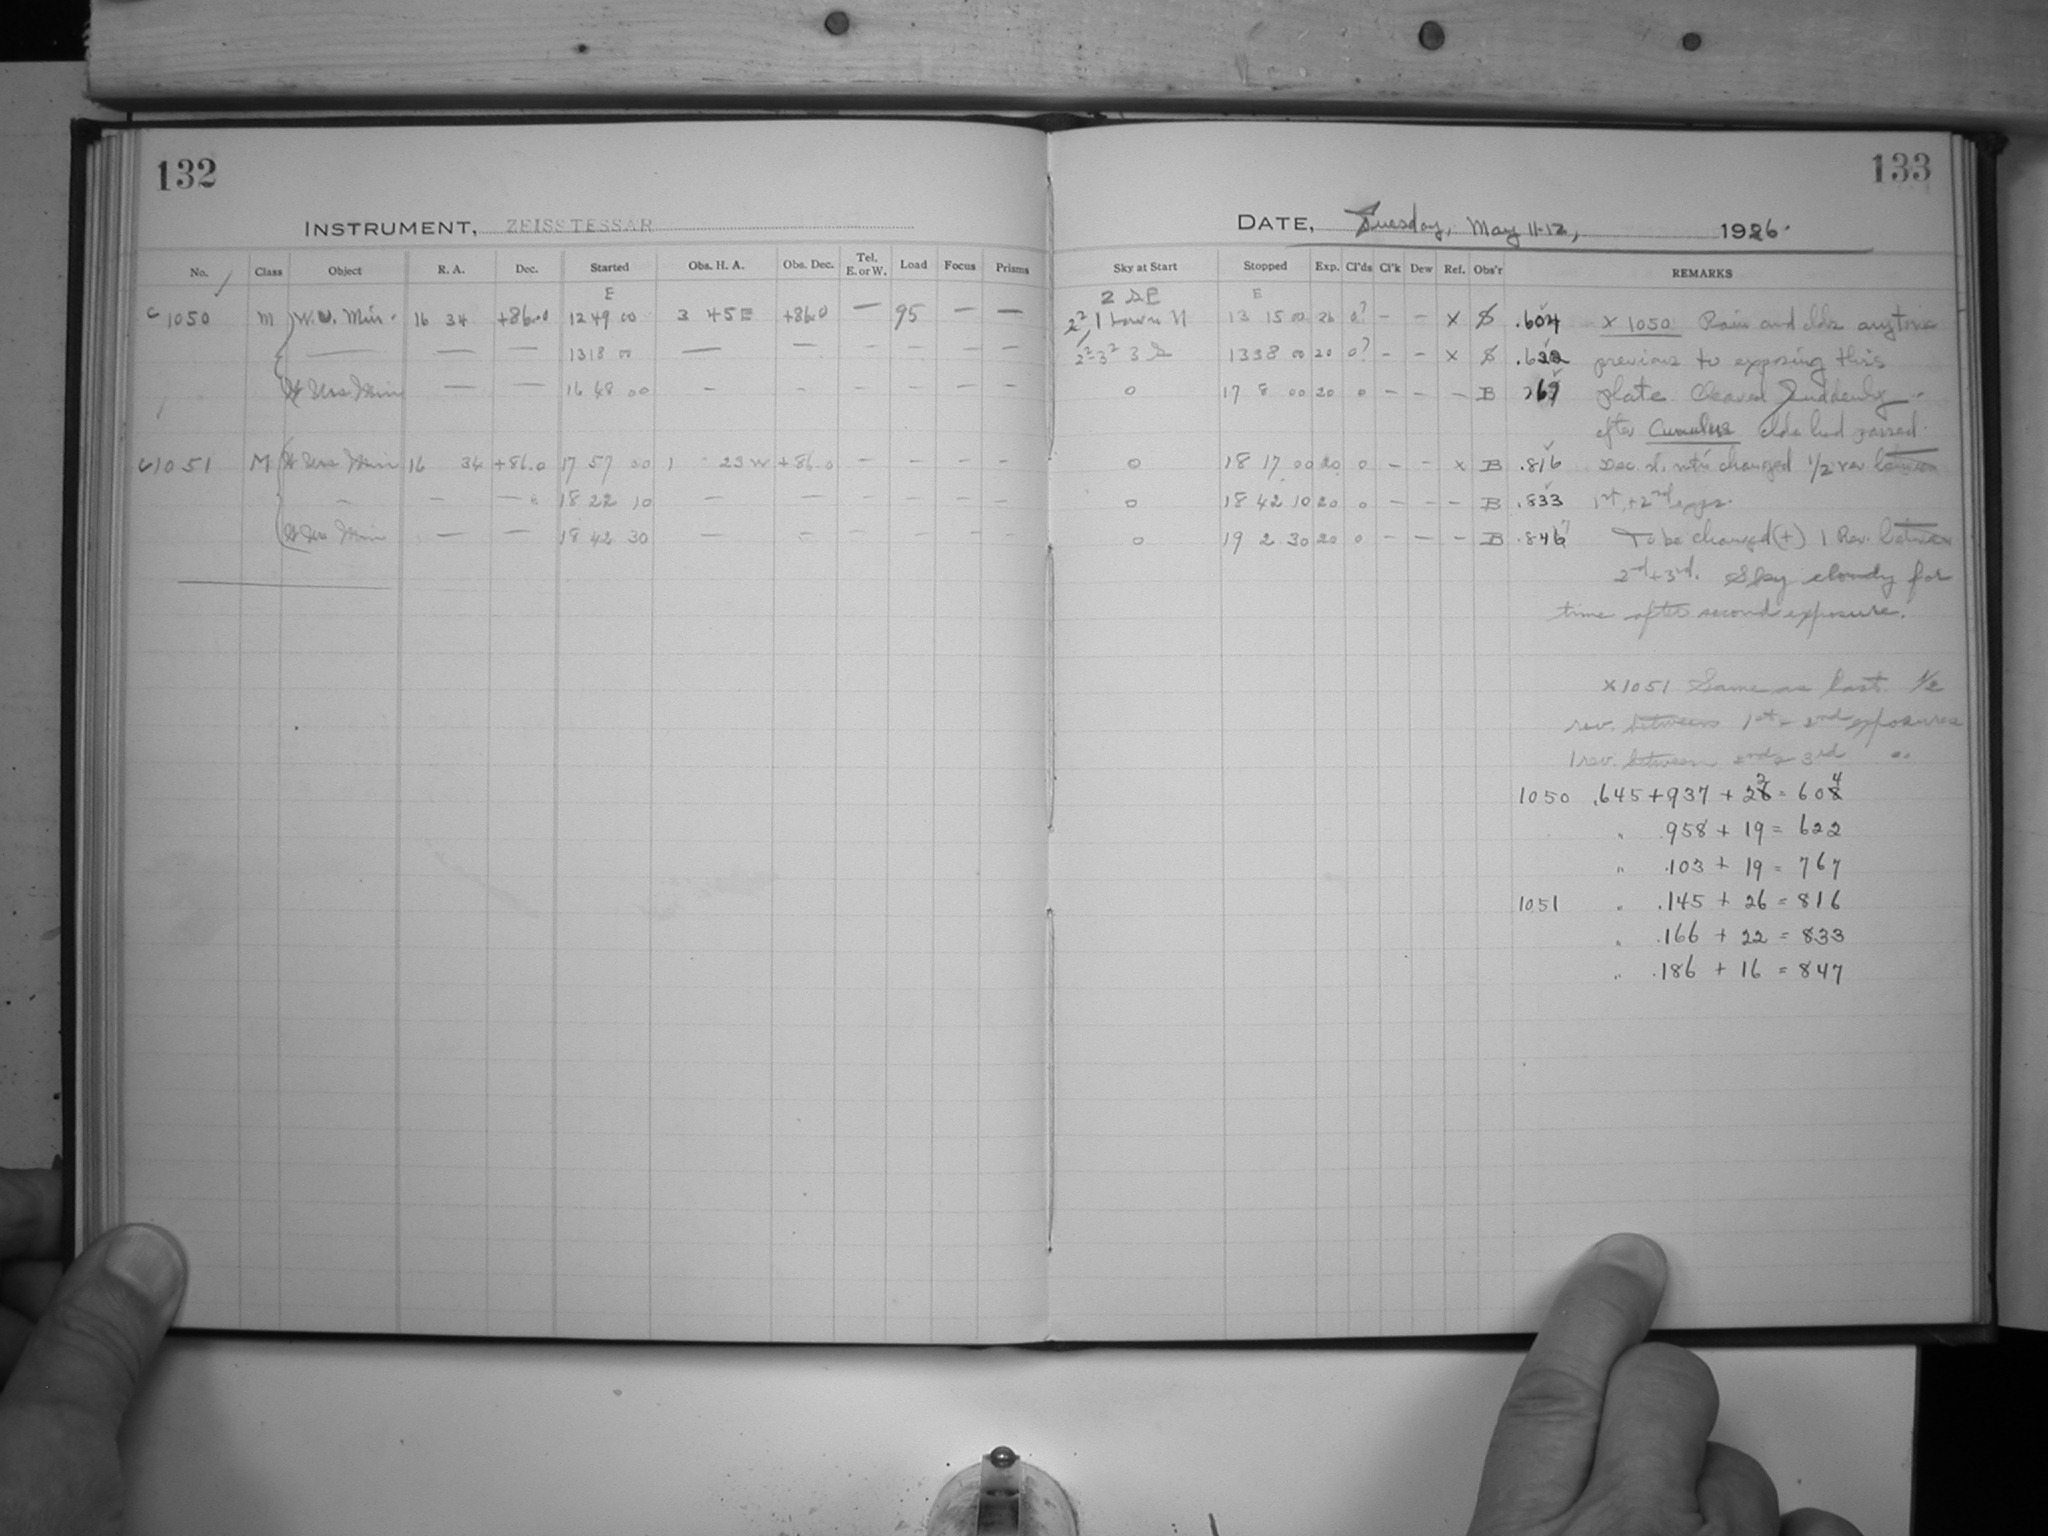 132
133
INSTRUMENT, ZEISS TESSAR
DATE, Tuesday, May 11-12, 1926.
No. Class Object R. A. Dec. Started Obs. H. A. Obs. Dec. Tel. E. or W. Load Focus Prisms
Sky at Start Stopped Exp. Cl'ds Cl'k Dew Ref. Obs'r REMARKS
E
2 SE E
c 1050 M W.U. Min. 16 34 +86.0 12 49 00 3 45 E +86.0 — 95 — —
1 low N 13 15 00 26 0? - - x S .604 x 1050 Rain and clds anytime
— — — 13 18 00 —
2²-3² 3 S 13 38 00 20 0? - - x S .622 previous to exposing this
W Urs Min — — 16 48 00 — — — — — —
0 17 8 00 20 0 - - - B plate. Cleared suddenly
after Cumulus clds had passed.
c 1051 M W Urs Min 16 34 +86.0 17 57 00 1 23 W +86.0 — — — —
0 18 17 00 20 0 - - x B .816 Dec. changed 1/2 rev. between
— — — 18 22 10 — — — — — —
0 18 42 10 20 0 - - - B .833 1st + 2nd exps.
W Urs Min — — 18 42 30 — — — — — —
0 19 2 30 20 0 - - - B .846 7 To be changed (+) 1 Rev. between
2nd + 3rd. Sky cloudy for
time after second exposure.
x 1051 Same as last. 1/2
rev. between 1st - 2nd exposures
1 rev. between 2nd - 3rd "
1050 .645 + 937 + 22 = 604
" .958 + 19 = 622
" .103 + 19 = 767
1051 " .145 + 26 = 816
" .166 + 22 = 833
" .186 + 16 = 847